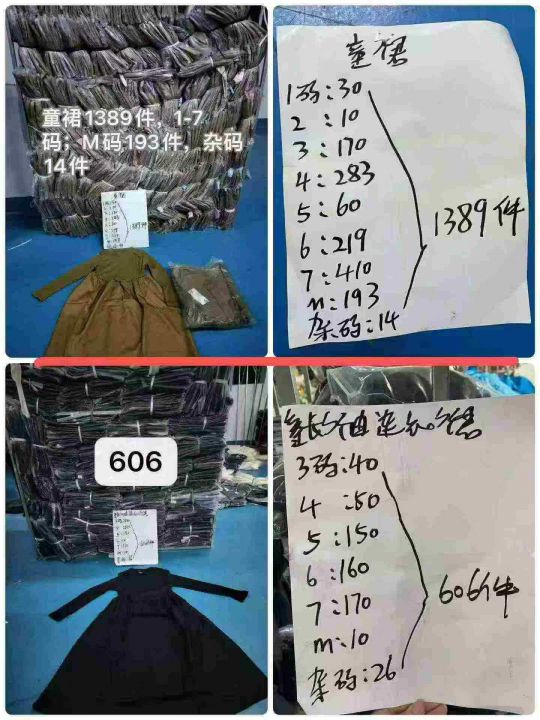 童裙1389件，1-7
码；M码193件，杂码
14件
童裙
1码:30
2:10
3:170
4:283
5:60
6:219
7:410
m:193
杂码:14
1389件
606
童长袖连衣裙
3码:40
4:50
5:150
6:160
7:170
m:10
杂码:26
606件